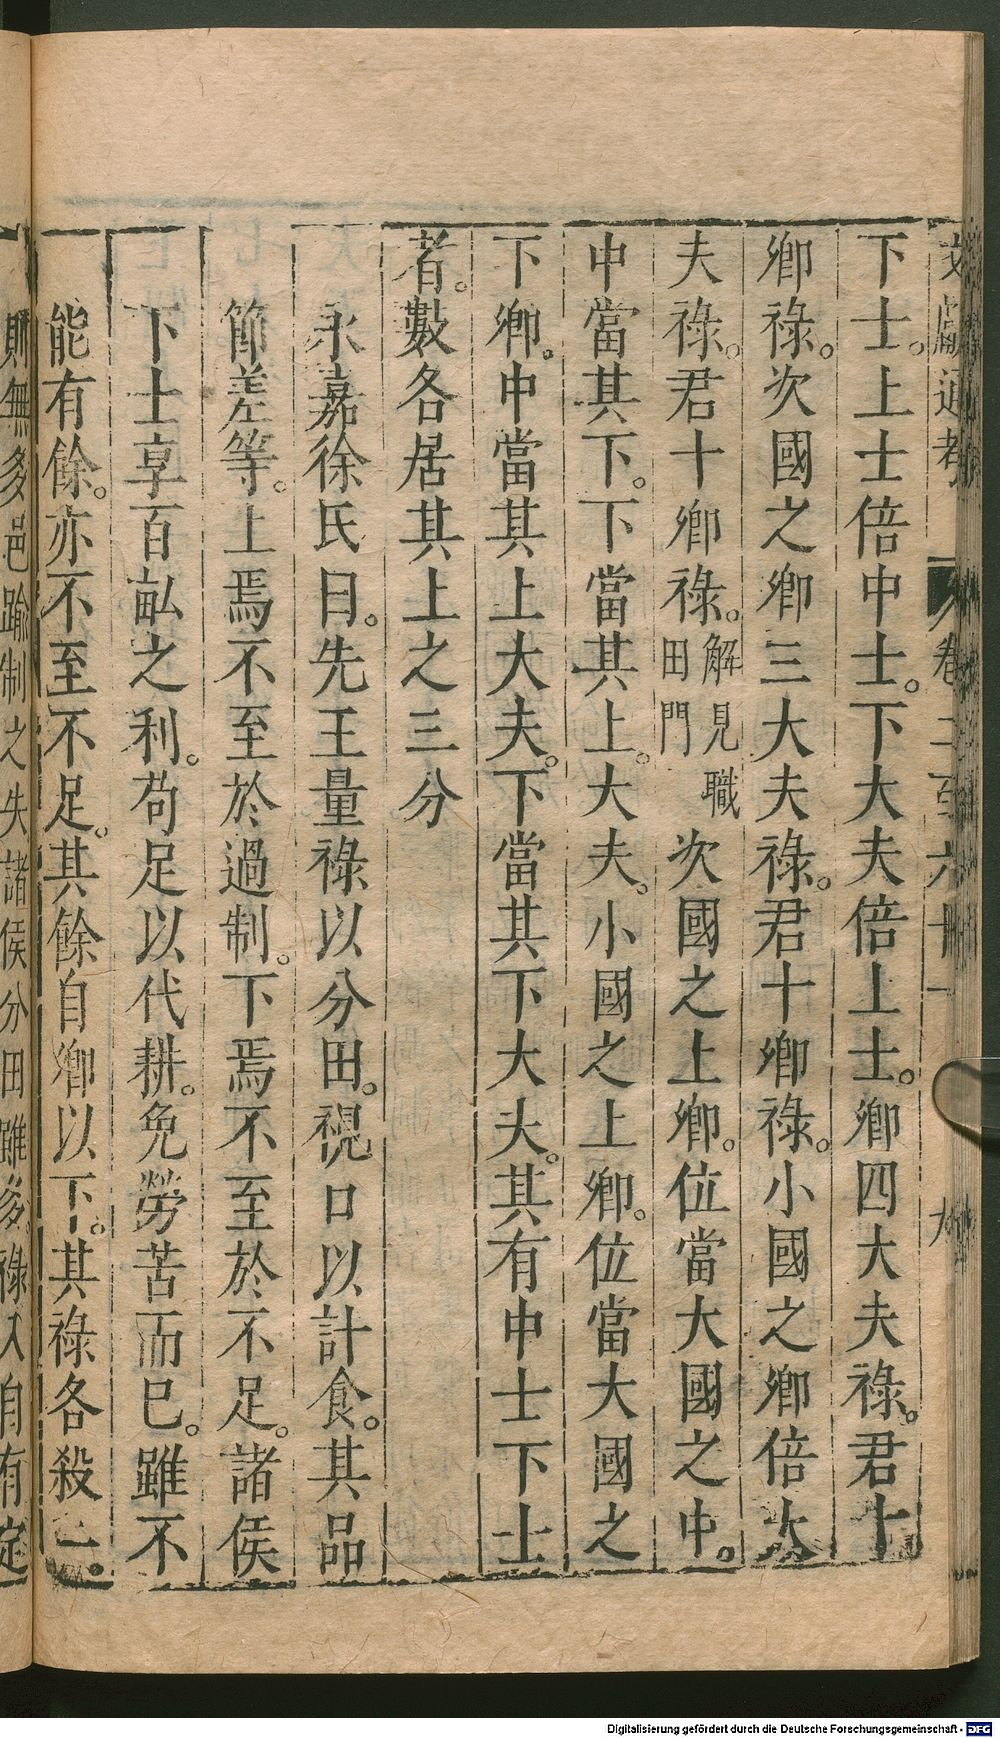 文獻通考 卷二百六十一 九
下士。上士倍中士。下大夫倍上士。卿四大夫祿。君十
卿祿。次國之卿三大夫祿。君十卿祿。小國之卿倍大
夫祿。君十卿祿。解見職田門次國之上卿。位當大國之中。
中當其下。下當其上。大夫。小國之上卿。位當大國之
下卿。中當其上大夫。下當其下大夫。其有中士下士
者。數各居其上之三分
永嘉徐氏曰。先王量祿以分田。視口以計食。其品
節差等。上焉不至於過制。下焉不至於不足。諸侯
下士享百畝之利。苟足以代耕。免勞苦而已。雖不
能有餘。亦不至不足。其餘自卿以下。其祿各殺一。
則無多邑踰制之失諸侯分田雖多祿入自有定
Digitalisierung gefördert durch die Deutsche Forschungsgemeinschaft - DFG